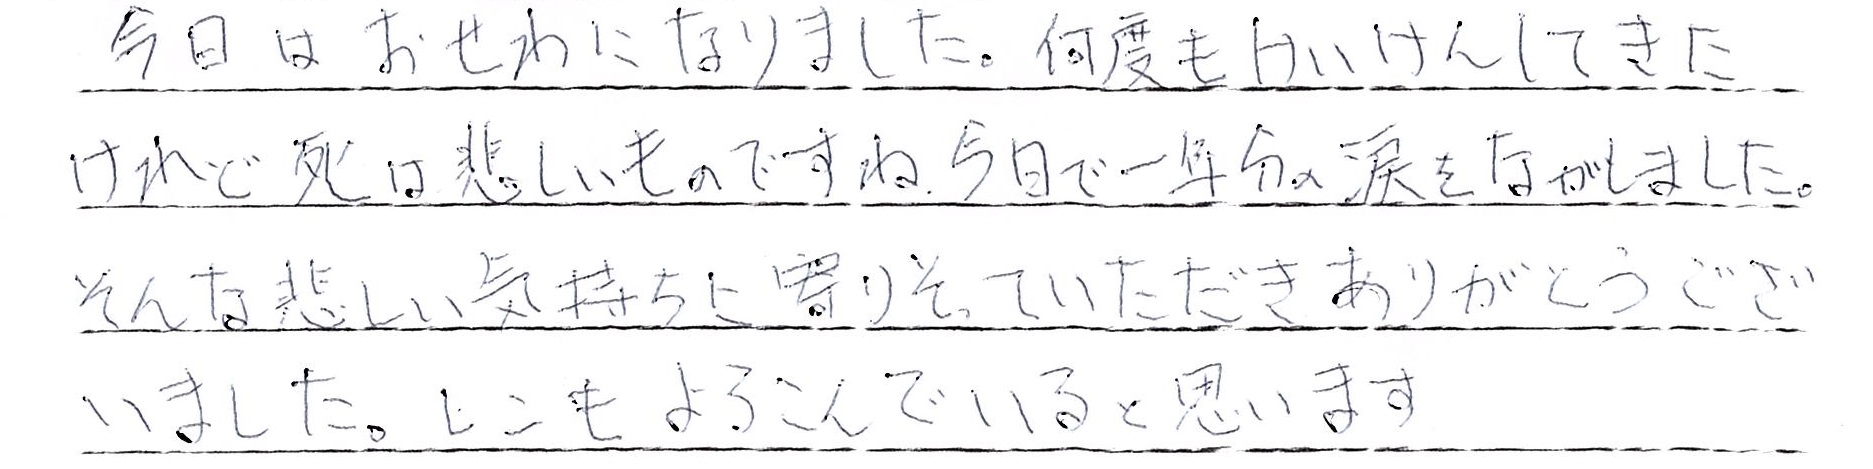 今日はおせわになりました。何度もけいけんしてきた
けれど死は悲しいものですね。今日で一年分の涙をながしました。
そんな悲しい気持ちに寄りそっていただきありがとうござ
いました。レンもよろこんでいると思います